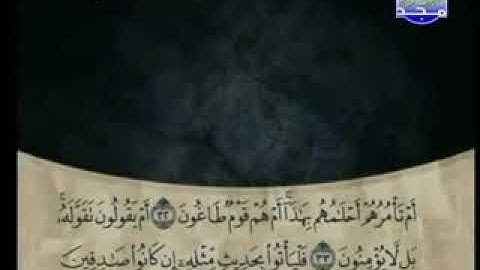 مجد
أَمْ تَأْمُرُهُمْ أَحْلَٰمُهُم بِهَٰذَآ ۚ أَمْ هُمْ قَوْمٌ طَاغُونَ ٣٢ أَمْ يَقُولُونَ تَقَوَّلَهُۥ ۚ
بَل لَّا يُؤْمِنُونَ ٣٣ فَلْيَأْتُوا۟ بِحَدِيثٍ مِّثْلِهِۦٓ إِن كَانُوا۟ صَٰدِقِينَ